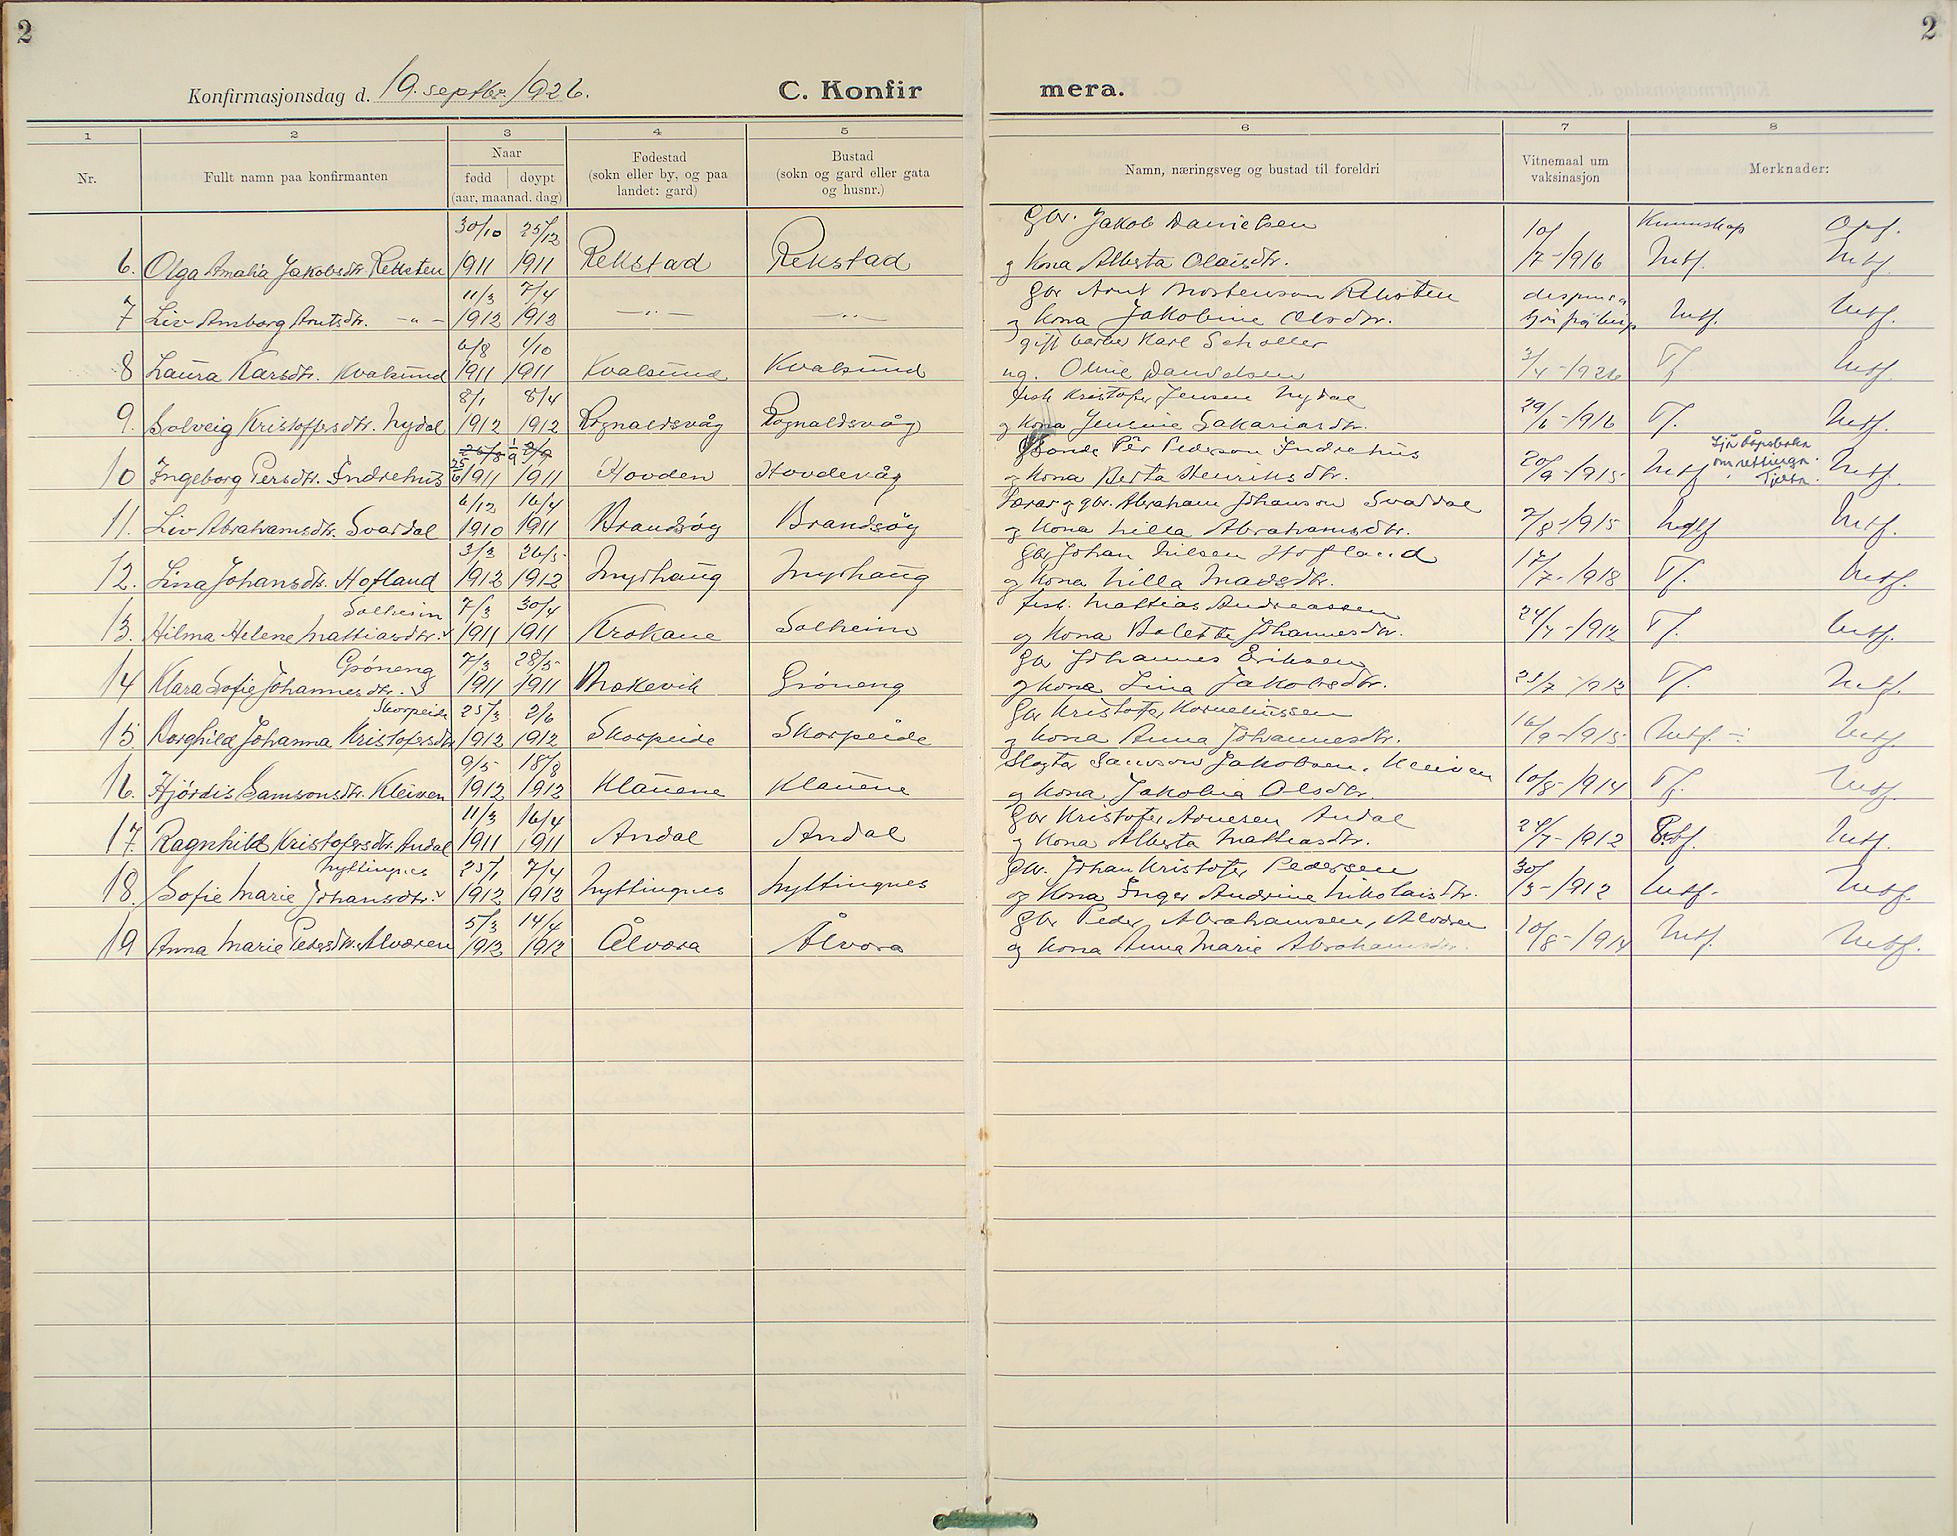 2
2
Konfirmasjonsdag d. 19. septbr. 1926.
C. Konfir
mera.
1 2 3 4 5 6 7 8
Nr.
Fullt namn paa konfirmanten
Naar
fødd døypt
(aar, maanad. dag)
Fødestad
(sokn eller by, og paa
landet: gard)
Bustad
(sokn og gard eller gata
og husnr.)
Namn, næringsveg og bustad til foreldri
Vitnemaal um
vaksinasjon
Merknader:
30/10 25/12 Gbr. Jakob Danielsen 10/ Kunnskap Opf.
6. Olga Amalia Jakobsdtr. Reksten 1911 1911 Rekstad Rekstad og kona Alberta Olaisdtr. /7-1916 Mtf. Mtf.
11/3 7/4 Gbr Arnt Mortenson Reksten
7 Liv Amborg Arntsdtr. -"- 1912 1912 -"- -"- og kona Jakobine Olsdtr. Mtf. Mtf.
6/8 1/10 gift barber Karl Scholler
8 Laura Karsdtr. Kvalsund 1911 1911 Kvalsund Kvalsund ug. Oline Danielsen 3/4-1926 Tf Mtf.
8/1 8/4 fisk Kristofer Jensen Nydal
9. Solveig Kristoffersdtr. Nydal 1912 1912 Rognaldsvåg Rognaldsvåg og kona Jensine Sakariasdtr. 29/6-1916 Tf. Mtf.
Bonde Per Pederson Indrehus
10 Ingeborg Persdtr. Indrehus 25/6 1911 1911 Hovden Hovdevåg og kona Berta Henriksdtr. 20/9-1915 Mtf. Sjå dåpsboka om rettinga. Mtf.
6/12 16/4 Lærar og gbr. Abraham Johanson Svardal
11. Liv Abrahamsdtr. Svardal 1910 1911 Brandsøy Brandsøy og kona Nilla Abrahamsdtr. 7/8-1915 Mtf. Mtf.
3/3 26/5 Gbr Johan Nilsen Hofland
12. Lina Johansdtr. Hofland 1912 1912 Myrhaug Myrhaug og kona Nilla Madsdtr. 17/7-1918 Tf. Mtf.
Solheim 7/3 30/4 fisk. Mattias Andreassen
13. Hilma Helene Mattiasdtr. 1911 1911 Krokane Solheim og kona Bolette Johannesdtr. 24/7-1912 Tf. Mtf.
Grøneng 7/3 28/5 Gbr Johannes Eriksen
14 Klara Sofie Johannesdtr. 1911 1911 Brekevik Grøneng og kona Lina Jakobsdtr. 23/7-1912 Tf. Mtf.
Skorpeide 25/3 2/6 Gbr Kristofer Korneliussen
15. Borghild Johanna Kristofersdtr 1912 1912 Skorpeide Skorpeide og kona Anna Johannesdtr. 16/9-1915 Mtf. Mtf.
9/5 18/8 Slagter Samson Jakobsen, Kleiven
16. Hjördis Samsonsdtr. Kleiven 1912 1912 Klauene Klauene og kona Jakobia Olsdtr. 10/8-1914 Tf. Mtf.
11/3 16/4 Gbr Kristofer Arnesen Andal
17. Ragnhild Kristofersdtr. Andal 1911 1911 Andal Andal og kona Alberta Mattiasdtr. 24/7-1912 Mtf.
Nyttingnes 25/1 7/4 Gbr. Johan Kristofer Pedersen 30/
18. Sofie Marie Johansdtr. 1912 1912 Nyttingnes Nyttingnes og kona Inger Andrine Nikolaisdtr. /3-1912 Mtf. Mtf.
5/3 14/4 Gbr Peder Abrahamsen, Alvøren
19 Anna Marie Pedersdtr. Alvøren 1912 1912 Ålvora Ålvora og kona Anna Marie Abrahamsdtr. 10/8-1914 Mtf. Mtf.